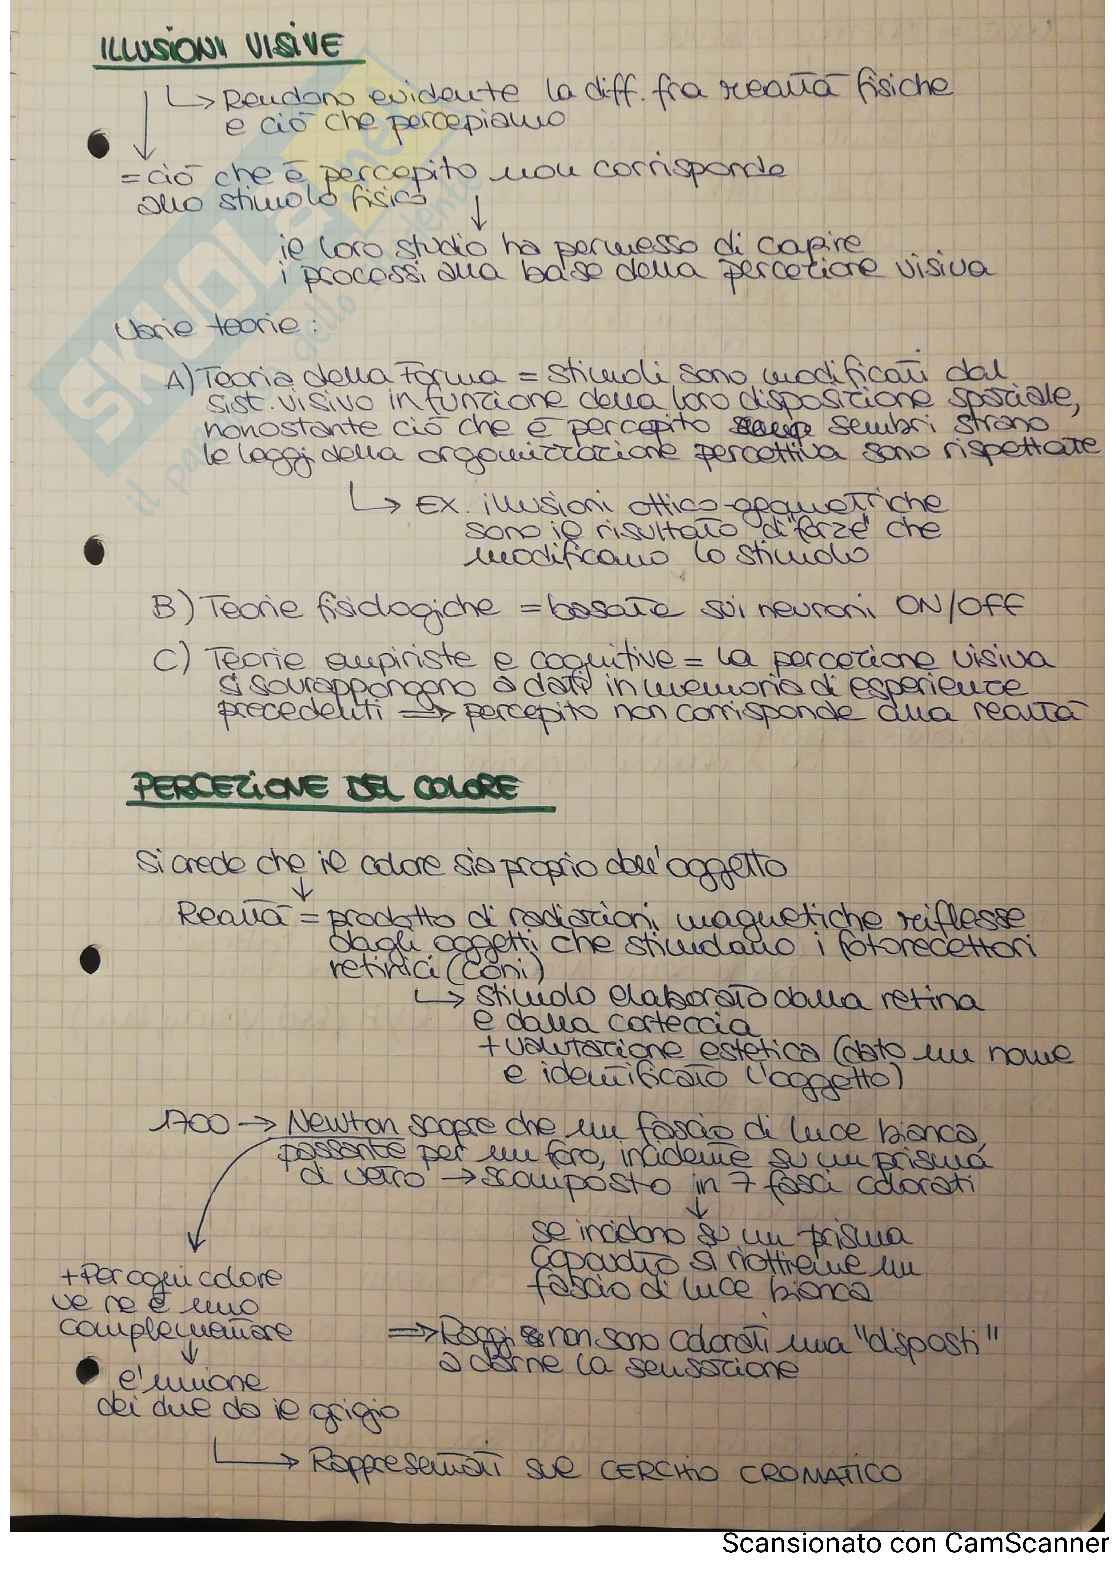 ILLUSIONI VISIVE
↳ Rendono evidente la diff. fra realtà fisiche
e ciò che percepiamo
= ciò che è percepito non corrisponde
allo stimolo fisico
il loro studio ha permesso di capire
i processi alla base della percezione visiva
Varie teorie:
A) Teoria della Forma = stimoli sono modificati dal
sist. visivo in funzione della loro disposizione spaziale,
nonostante ciò che è percepito sembri strano
le leggi della organizzazione percettiva sono rispettate
↳ EX. illusioni ottico-geometriche
sono il risultato di "forze" che
modificano lo stimolo
B) Teorie fisiologiche = basate sui neuroni ON/OFF
C) Teorie empiriste e cognitive = la percezione visiva
si sovrappongono a dati in memoria di esperienze
precedenti ⇒ percepito non corrisponde alla realtà
PERCEZIONE DEL COLORE
Si crede che il colore sia proprio dell'oggetto
Realtà = prodotto di radiazioni magnetiche riflesse
dagli oggetti che stimolano i fotorecettori
retinici (coni)
↳ stimolo elaborato dalla retina
e dalla corteccia
+ valutazione estetica (dato un nome
e identificato l'oggetto)
1700 → Newton scopre che un fascio di luce bianca,
passante per un foro, incidente su un prisma
di vetro → scomposto in 7 fasci colorati
se incidono su un prisma
capovolto si riottiene un
fascio di luce bianca
+ Per ogni colore
ve ne è uno
complementare
⇒ Raggi non sono colorati ma "disposti"
a darne la sensazione
e l'unione
dei due da il grigio
↳ Rappresentati sul CERCHIO CROMATICO
SKUOLA.net
Scansionato con CamScanner